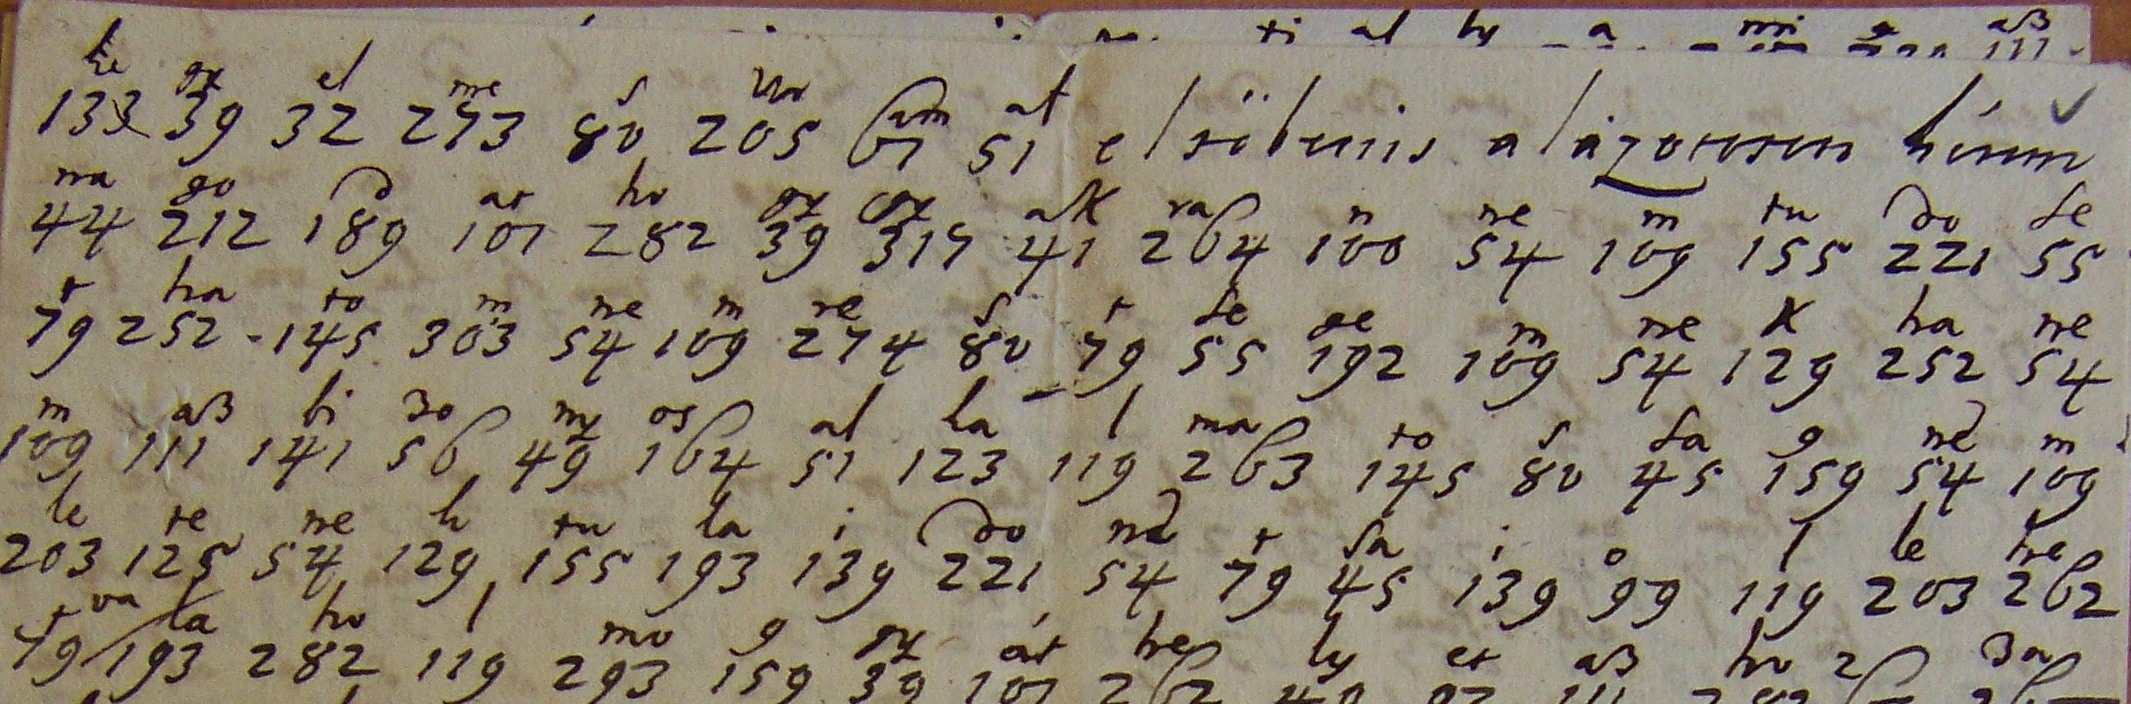 ti al ly a mi aß
111
ke gy el me s Uo am at
133 39 32 273 80 205 67 51 elsöbenis alázotosson kérem
ma go d at ho gy gy ak ra n ne m tu do se
44 212 189 107 282 39 319 41 264 100 54 109 155 221 55
t ha to m ne m re s t se ge m ne k ha ne
79 252 145 303 54 109 274 80 79 55 192 109 54 129 252 54
m aß bi zo ny os al ta l ma to s sa g ne m
109 111 141 56 49 164 51 123 119 263 145 80 45 159 54 109
le te ne k tu la i do ne t sa i o l le he
203 125 54 129 155 193 139 221 54 79 45 139 99 119 203 262
t va la ho l mo g gy át he ly et aß ho z za
79 193 282 119 293 159 39 107 262 49 97 111 282